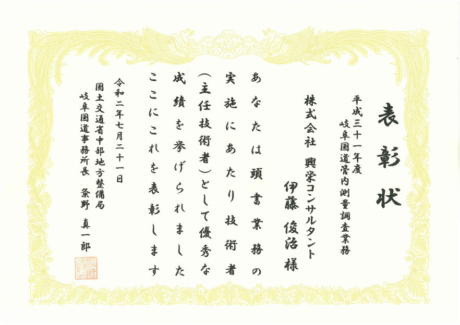 表彰状
平成三十一年度
岐阜国道管内測量調査業務
株式会社 興栄コンサルタント
伊藤 俊治 様
あなたは頭書業務の
実施にあたり技術者
（主任技術者）として優秀な
成績を挙げられました
ここにこれを表彰します
令和二年七月二十一日
国土交通省中部地方整備局
岐阜国道事務所長 粂野 真一郎